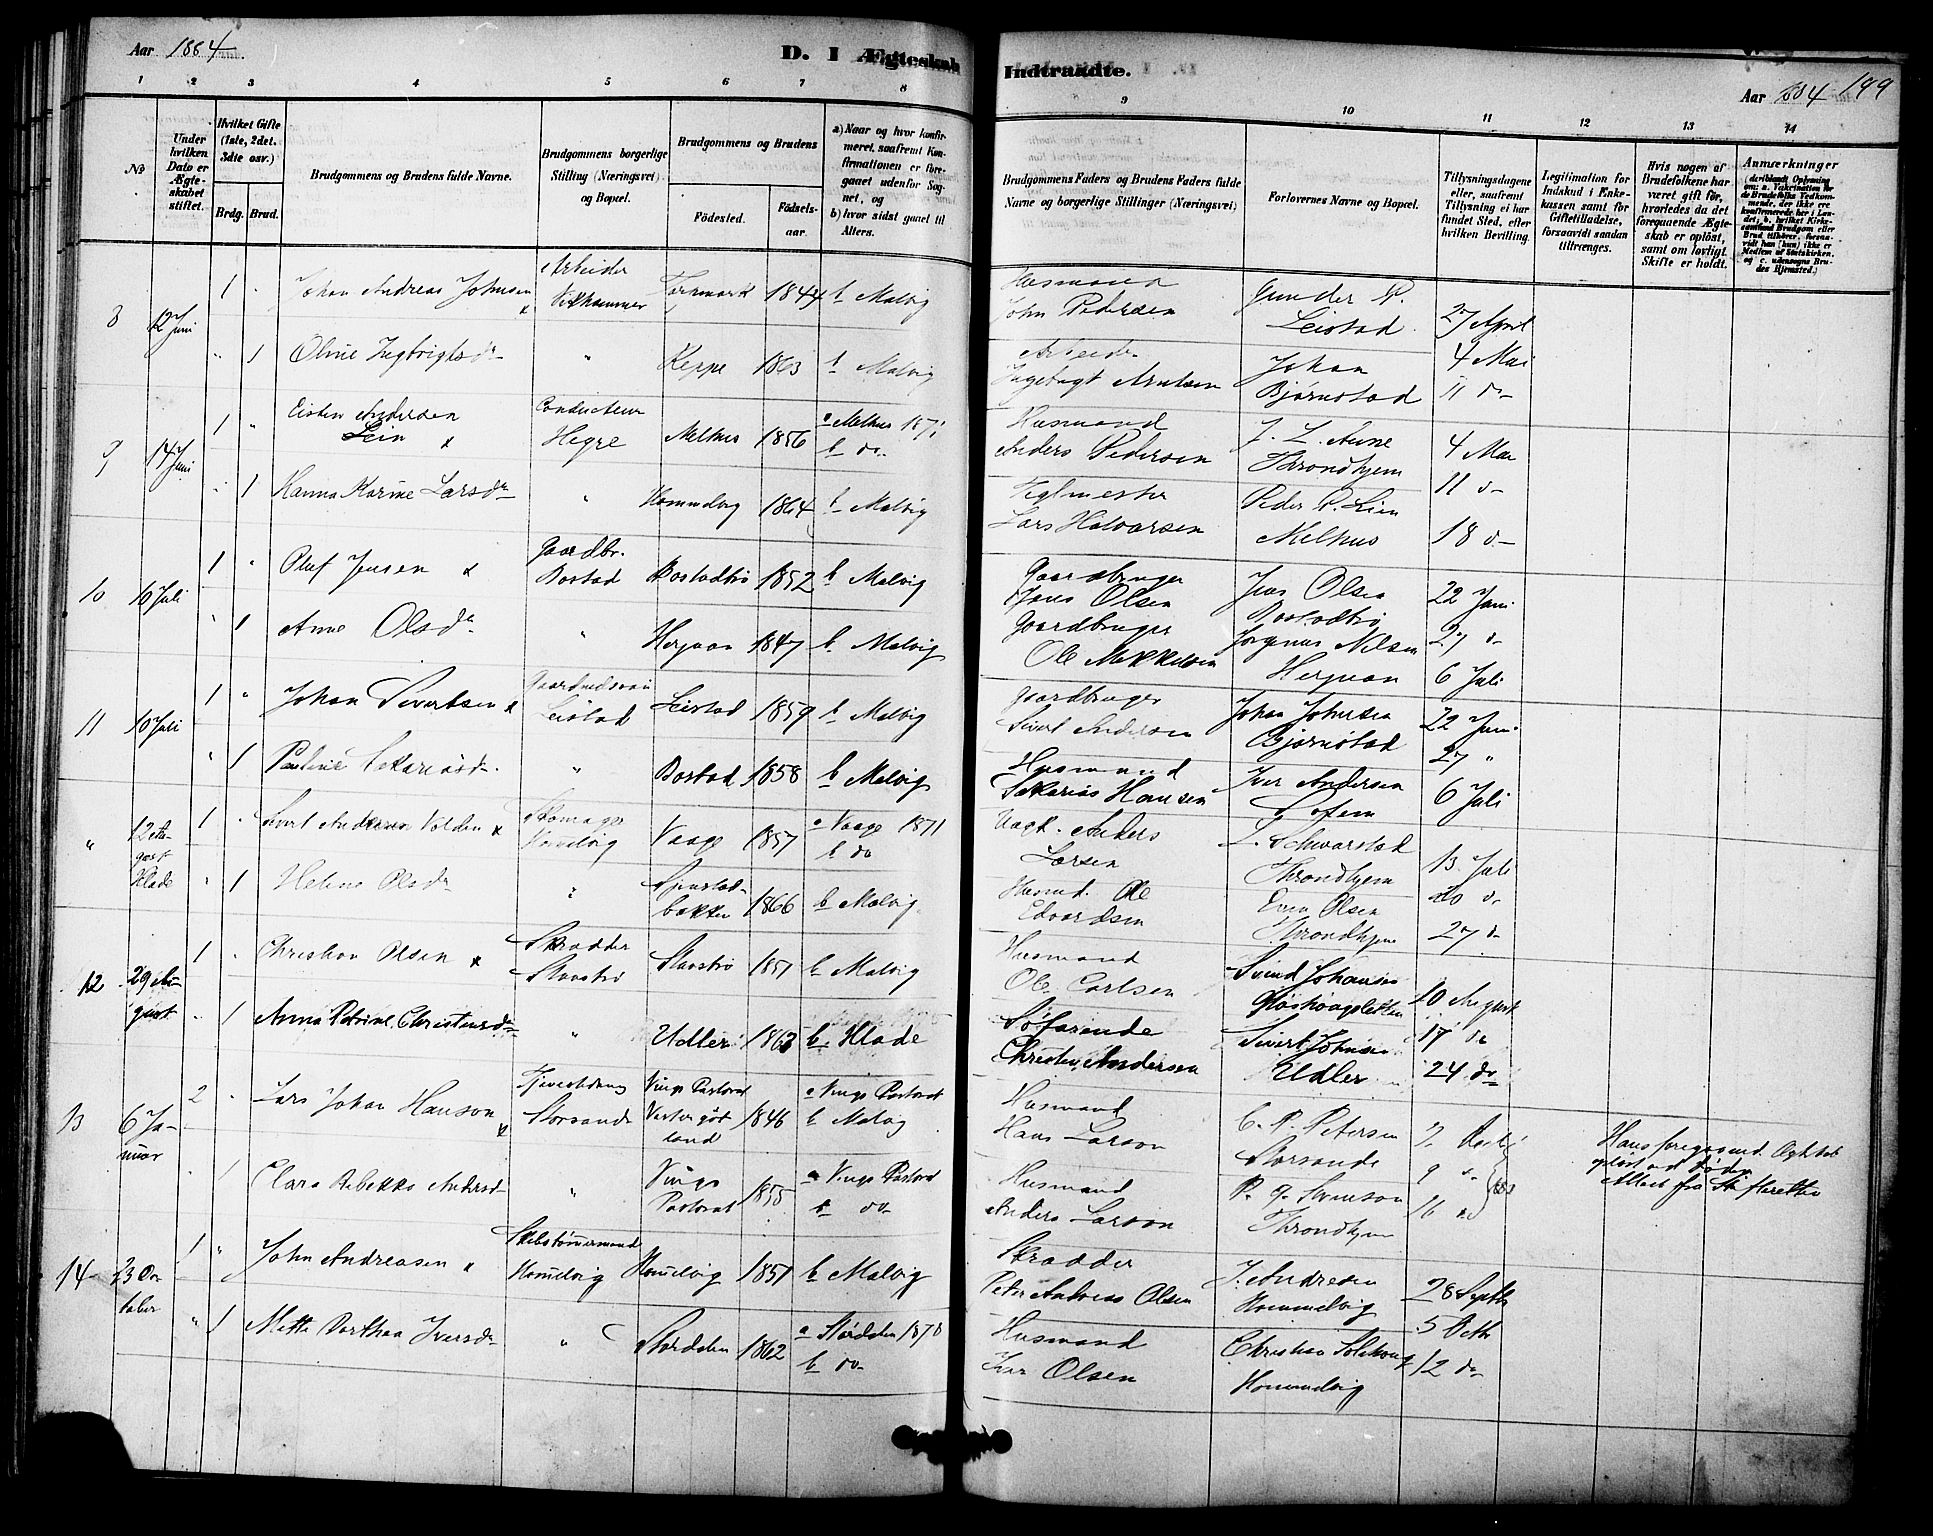 Aar 1884
D. I Ægteskab
Indtraadte.
Aar 1884 199
1 2 3 4 5 6 7 8
9 10 11 12 13 14
No
Under hvilken Dato er Ægteskabet stiftet.
Hvilket Gifte (1ste, 2det, 3die osv.)
Brdg. Brud.
Brudgommens og Brudens fulde Navne.
Brudgommens borgerlige Stilling (Næringsvei) og Bopæl.
Brudgommens og Brudens
Födested.
Födselsaar.
a) Naar og hvor konfirmeret, saafremt Konfirmationen er foregaaet udenfor Sognet, og
b) hvor sidst gaaet til Alters.
Brudgommens Faders og Brudens Faders fulde Navne og borgerlige Stillinger (Næringsvei)
Forlovernes Navne og Bopæl.
Tillysningsdagene eller, saafremt Tillysning ei har fundet Sted, efter hvilken Bevilling.
Legitimation for Indskud i Enkekassen samt for Giftetilladelse, forsaavidt saadan tiltrænges.
Hvis nogen af Brudefolkene har været gift för, hvorledes da det foregaaende Ægteskab er oplöst, samt om lovligt Skifte er holdt.
Anmærkninger
8 12 Juni 1 " Johan Andreas Johnsen Arbeider Vikhammer 1844 b Malvig Husmand John Pedersen Gunder P. Leistad 27 April
" 1 Oline Ingbrigtsdr " Keppe 1863 b Malvig Arbeider Ingebrigt Arntsen Johan Bjørnstad 4 Mai 11 do
9 14 Juni 1 " Eisten Andersen Lein Conducteur Hegre Melhus 1856 a Melhus 1871 b do Husmand Anders Pedersen J. L. Aune Throndhjem 4 Mai
" 1 Hanna Karine Larsdr " Hommelvig 1864 b Malvig Teglmester Lars Halvarsen Peder P. Lien Melhus 11 do 18 do
10 10 Juli 1 " Oluf Jensen Gaardbr. Bostad Bostadtrø 1852 b Malvig Gaardbruger Jens Olsen Jens Olsen Bostadtrø 22 Juni
" 1 Anne Olsdr " Hergvan 1847 b Malvig Gaardbruger Ole Mikkelsen Jørgenus Nilsen Hergvan 27 do 6 Juli
11 10 Juli 1 " Johan Sivertsen Leistad Leistad 1859 b Malvig Gaardbruger Sivert Andersen Johan Johnsen Bjørnstad 22 Juni
" 1 Pauline Sakariasdr " Bostad 1858 b Malvig Husmand Sakarias Hansen Iver Andersen 27 " 6 Juli
" 12 August Hlade 1 " Sivert Andersen Volden Skomager Homelvig Vaage 1857 a Vaage 1871 b do Anders Larsen L. Schwarstad Throndhjem 13 Juli
" 1 Helene Olsdr " 1866 b Malvig Husmd. Ole Edvardsen Even Olsen Throndhjem 20 do 27 do
12 29 August 1 " Christian Olsen Skrædder Stavstrø Stavstrø 1851 b Malvig Husmand Ole Carlsen Svend Johansen 10 August
" 1 Anna Petrine Christensdr " Udler 1863 b Hlade Søfarende Christen Andersen Sivert Johnsen Udler 17 do 24 do
13 6 Januar 2 " Lars Johan Hanson Storsand Vings Pastorat Vestergötland 1846 a Vings Pastorat b Malvig Husmand Hans Larson C. P. Petersen Storsand 2
" 1 Clara Rebekka Andersdr " Vings Pastorat 1855 a Vings Pastorat b do Husmand Anders Larson P. G. Svenson Throndhjem 9 " 16
Hans foregaaend. Ægtskab opløst ved Døden Attest fra Skifteretten
14 23 October 1 " John Andreasen Skibstømmermand Homelvig Homelvig 1851 b Malvig Skrædder Peter Andreas Olsen J. Andresen Hommelvig 28 Septbr
" 1 Mette Dorthea Iversdr " Størdalen 1862 a Størdalen 1878 b do Husmand Iver Olsen Christian Solhoug Hommelvig 5 Octbr 12 do